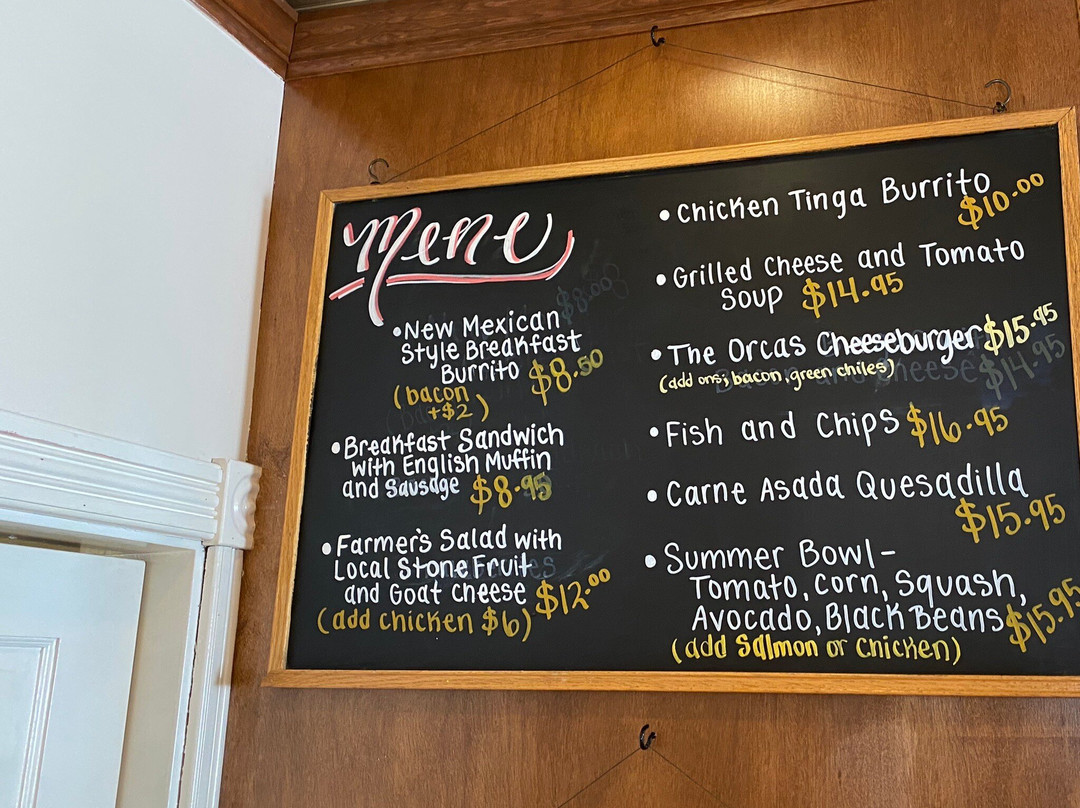 Menu
• New Mexican
Style Breakfast
Burrito $8.50
(bacon
+$2)
• Breakfast Sandwich
with English Muffin
and Sausage $8.95
• Farmer's Salad with
Local Stone Fruit
and Goat Cheese $12.00
(add chicken $6)
• Chicken Tinga Burrito
$10.00
• Grilled Cheese and Tomato
Soup $14.95
• The Orcas Cheeseburger $15.95
(add ons; bacon, green chiles)
• Fish and Chips $16.95
• Carne Asada Quesadilla
$15.95
• Summer Bowl-
Tomato, Corn, Squash,
Avocado, Black Beans $15.95
(add Salmon or Chicken)